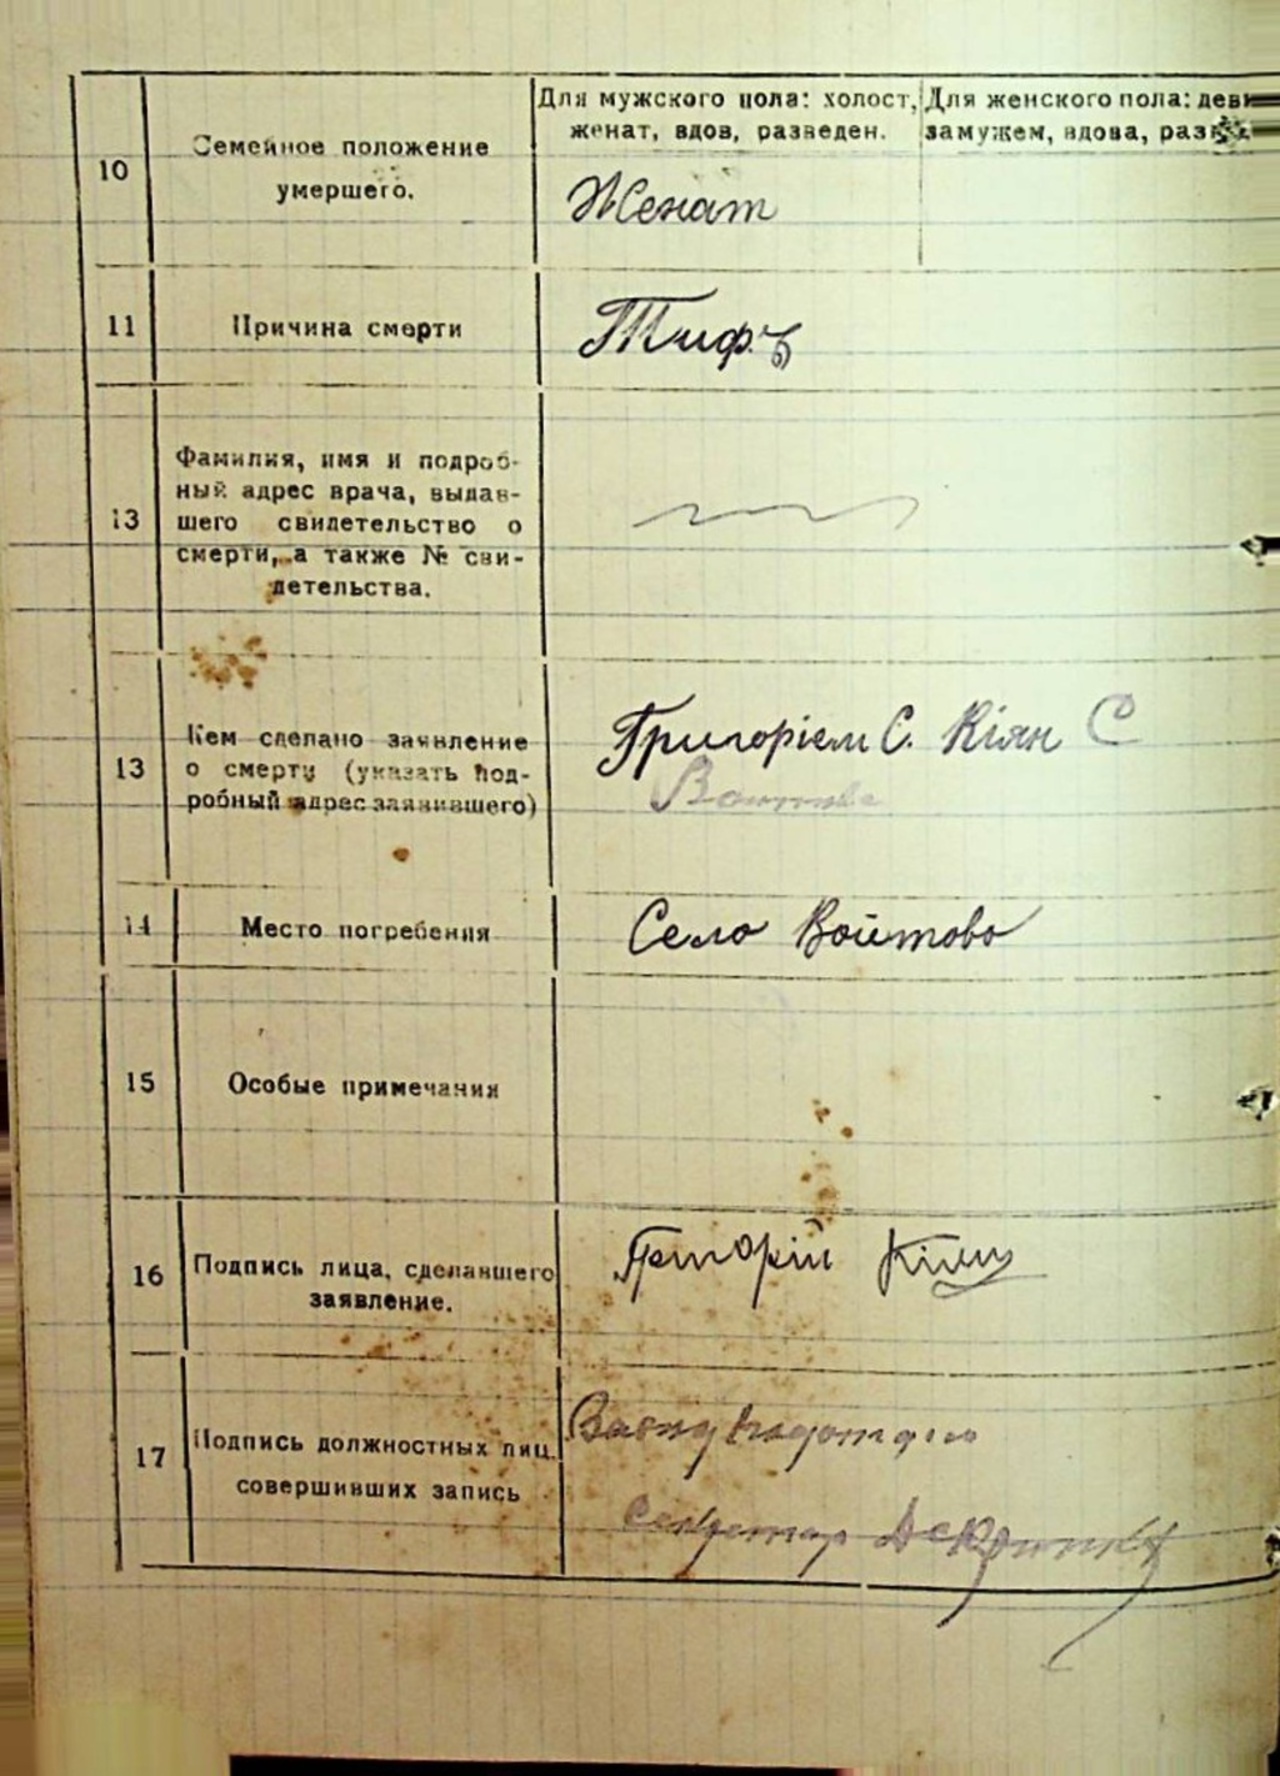 10
Семейное положение
умершего.
Для мужского пола: холост,
женат, вдов, разведен.
Для женского пола: деви
замужем, вдова, разв
Женат
11
Причина смерти
Тифъ
13
Фамилия, имя и подроб-
ный адрес врача, выдав-
шего свидетельство о
смерти, а также № сви-
детельства.
13
Кем сделано заявление
о смерти (указать под-
робный адрес заявившего)
Григоріем С. Кіян С
14
Место погребения
Село Войтово
15
Особые примечания
16
Подпись лица, сделавшего
заявление.
Григорій Кіян
17
Подпись должностных лиц,
совершивших запись
Секретар